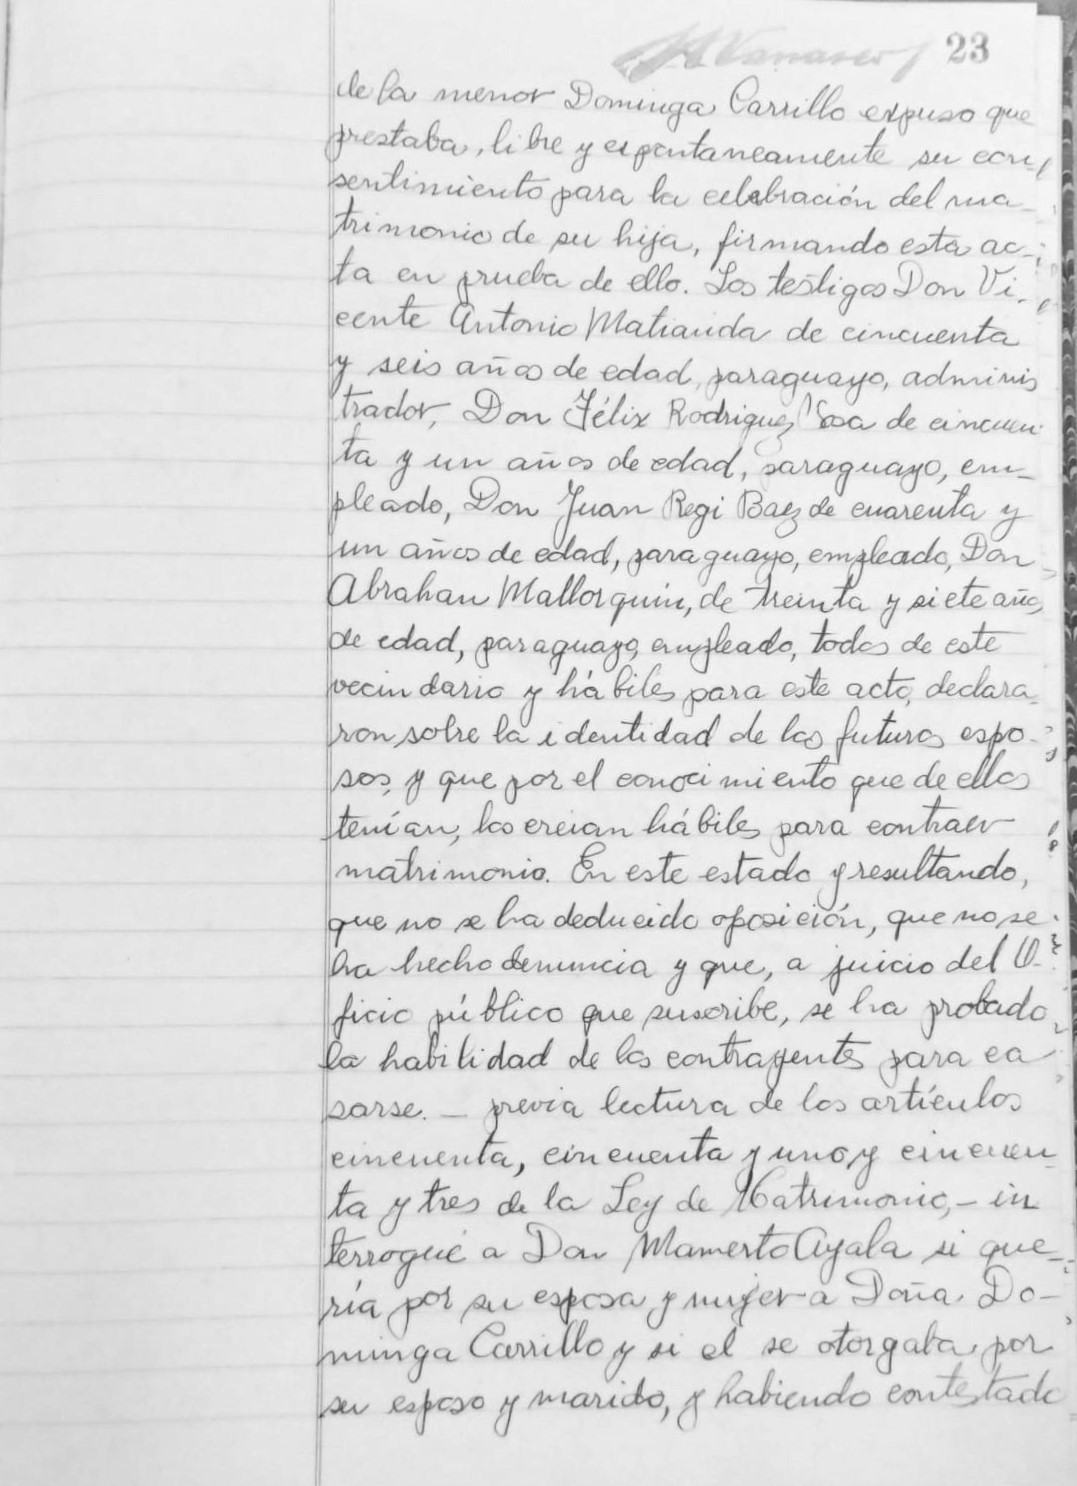 23
de la menor Dominga Carrillo expuso que
prestaba, libre y espontaneamente su con-
sentimiento para la celebración del ma-
trimonio de su hija, firmando esta ac-
ta en prueba de ello. Los testigos Don Vi-
cente Antonio Matiauda de cincuenta
y seis años de edad, paraguayo, adminis
trador, Don Félix Rodriguez Sosa de cincuen-
ta y un años de edad, paraguayo, em-
pleado, Don Juan Regi Baez de cuarenta y
un años de edad, paraguayo, empleado, Don
Abrahan Mallorquin, de treinta y siete años
de edad, paraguayo, empleado, todos de este
vecindario y hábiles para este acto, declara-
ron sobre la identidad de los futuros espo-
sos, y que por el conocimiento que de ellos
tenían, los creian hábiles para contraer
matrimonio. En este estado y resultando,
que no se ha deducido oposición, que no se
ha hecho denuncia y que, a juicio del O-
ficio público que suscribe, se ha probado
la habilidad de los contrayentes para ca
sarse. — previa lectura de los artículos
cincuenta, cincuenta y uno y cincuen-
ta y tres de la Ley de Matrimonio, - in
terrogué a Don Mamerto Ayala si que-
ría por su esposa y mujer a Doña Do-
minga Carrillo y si el se otorgaba por
su esposo y marido, y habiendo contestado